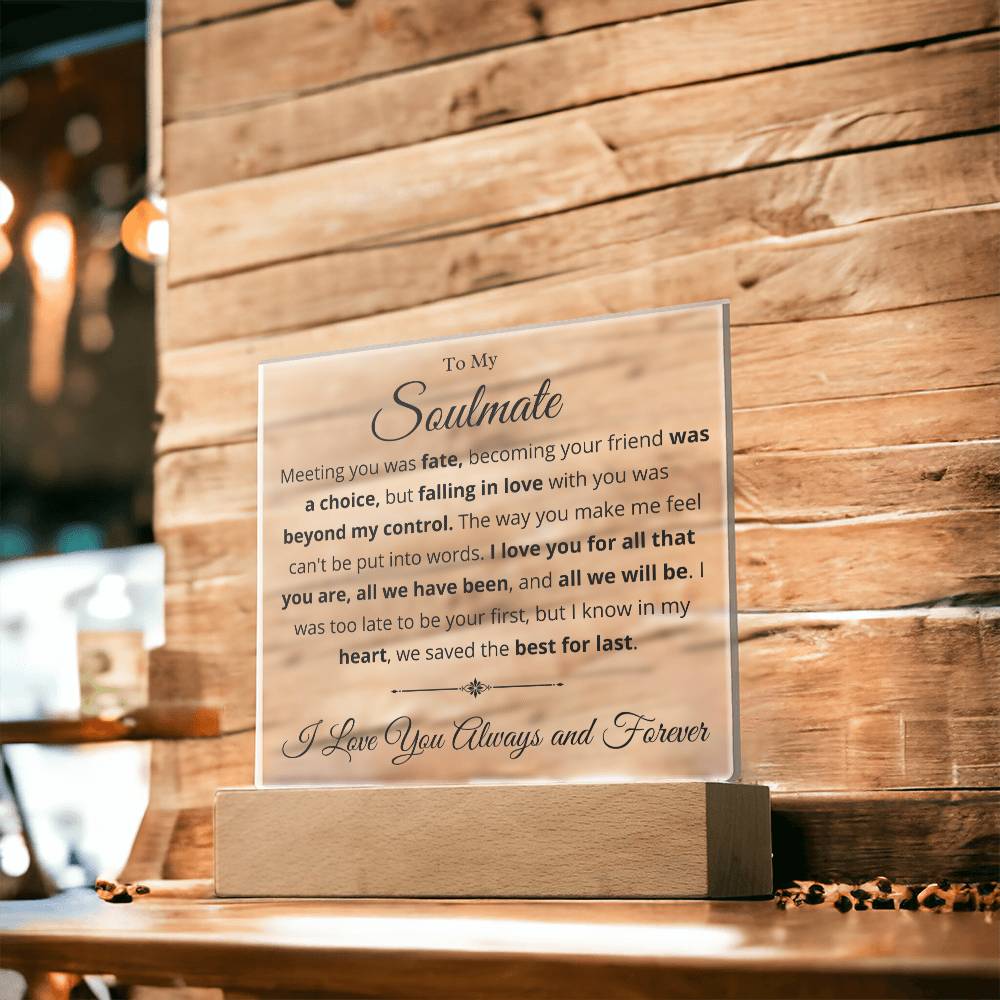 To My
Soulmate
Meeting you was fate, becoming your friend was
a choice, but falling in love with you was
beyond my control. The way you make me feel
can't be put into words. I love you for all that
you are, all we have been, and all we will be. I
was too late to be your first, but I know in my
heart, we saved the best for last.
I Love You Always and Forever